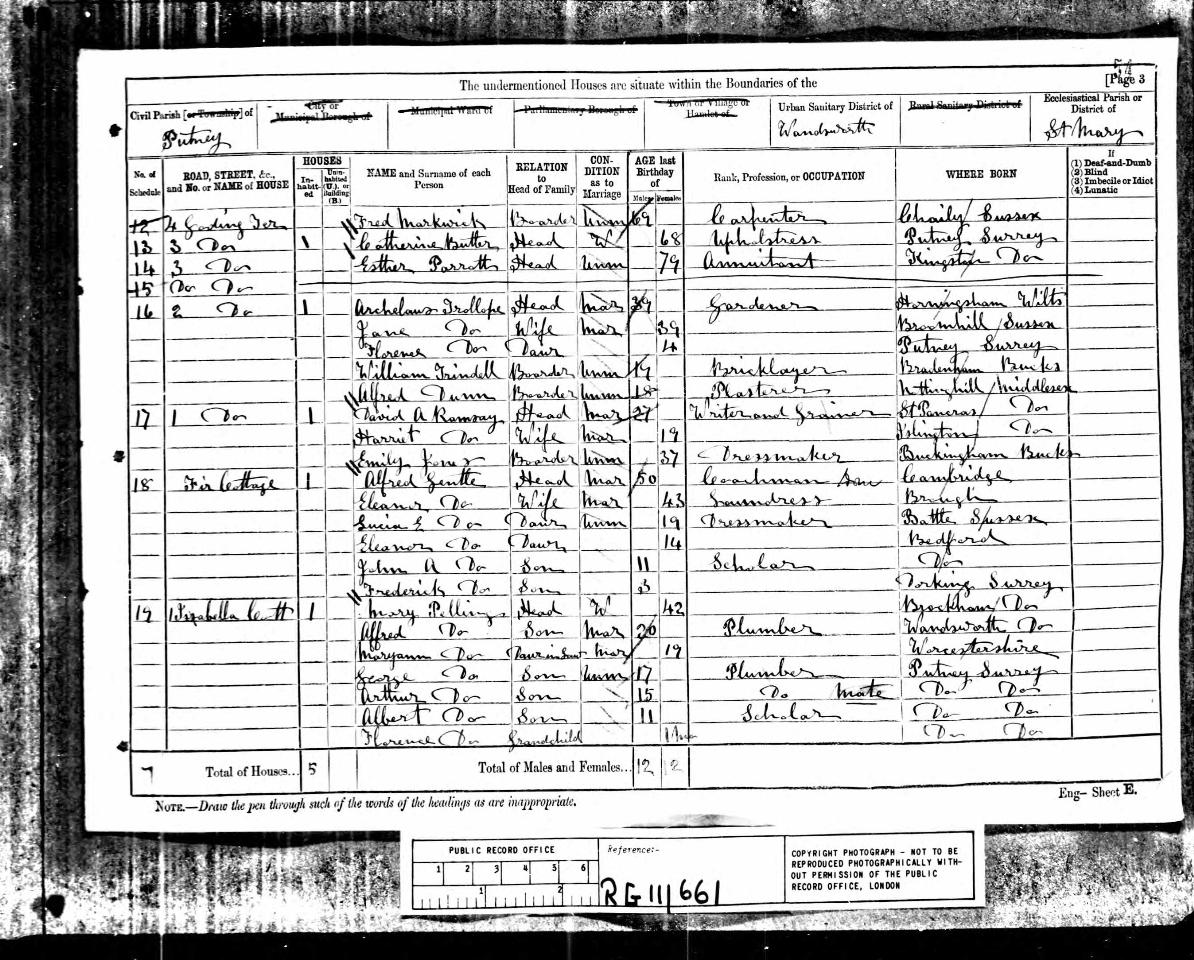 54
The undermentioned Houses are situate within the Boundaries of the [Page 3
Civil Parish [or Township] of City or Municipal Borough of Municipal Ward of Parliamentary Borough of Town or Village or Hamlet of Urban Sanitary District of Rural Sanitary District of Ecclesiastical Parish or District of
Putney Wandsworth St Mary
No. of Schedule ROAD, STREET, &c., and No. or NAME of HOUSE HOUSES In-habit-ed Unin-habited (U.), or Building (B.) NAME and Surname of each Person RELATION to Head of Family CON-DITION as to Marriage AGE last Birthday of Males Females Rank, Profession, or OCCUPATION WHERE BORN If (1) Deaf-and-Dumb (2) Blind (3) Imbecile or Idiot (4) Lunatic
12 4 Ter Fred Markwick Boarder Unm 69 Carpenter Chaily Sussex
13 3 Do 1 Catherine Butter Head W 68 Upholstress Putney Surrey
14 3 Do Esther Parratt Head Unm 79 Annuitant Kingston Do
15 Do Do
16 2 Do 1 Archelaus Trollope Head Mar 39 Gardener Horningsham Wilts
Jane Do Wife Mar 39 Broomhill Sussex
Florence Do Daur 4 Putney Surrey
William Trindell Boarder Unm 19 Bricklayer Bradenham Bucks
Alfred Dunn Boarder Unm 18 Plasterer Nottinghill Middlesex
17 1 Do 1 David A Ramsay Head Mar 27 Writer and Grainer St Pancras Do
Harriet Do Wife Mar 19 Islington Do
Emily Jones Boarder Unm 37 Dressmaker Buckingham Bucks
18 Fir Cottage 1 Alfred Gentle Head Mar 50 Coachman Cambridge
Eleanor Do Wife Mar 43 Laundress Brough
Lucia E Do Daur Unm 19 Dressmaker Battle Sussex
Eleanor Do Daur 14 Bedford
John A Do Son 11 Scholar Do
Frederick Do Son 3 Dorking Surrey
19 1 Isabella Cott 1 Mary Pilling Head W 42 Brockham Do
Alfred Do Son Mar 20 Plumber Wandsworth Do
Maryann Do Daur in Law Mar 19 Worcestershire
George Do Son Unm 17 Plumber Putney Surrey
Arthur Do Son 15 Do Mate Do Do
Albert Do Son 11 Scholar Do Do
Florence Do Grandchild Do Do
7 Total of Houses... 5 Total of Males and Females... 12 12
NOTE.—Draw the pen through such of the words of the headings as are inappropriate.
Eng- Sheet E.
PUBLIC RECORD OFFICE
1 2 3 4 5 6
1 2
Reference:-
RG 11/661
COPYRIGHT PHOTOGRAPH - NOT TO BE
REPRODUCED PHOTOGRAPHICALLY WITH-
OUT PERMISSION OF THE PUBLIC
RECORD OFFICE, LONDON